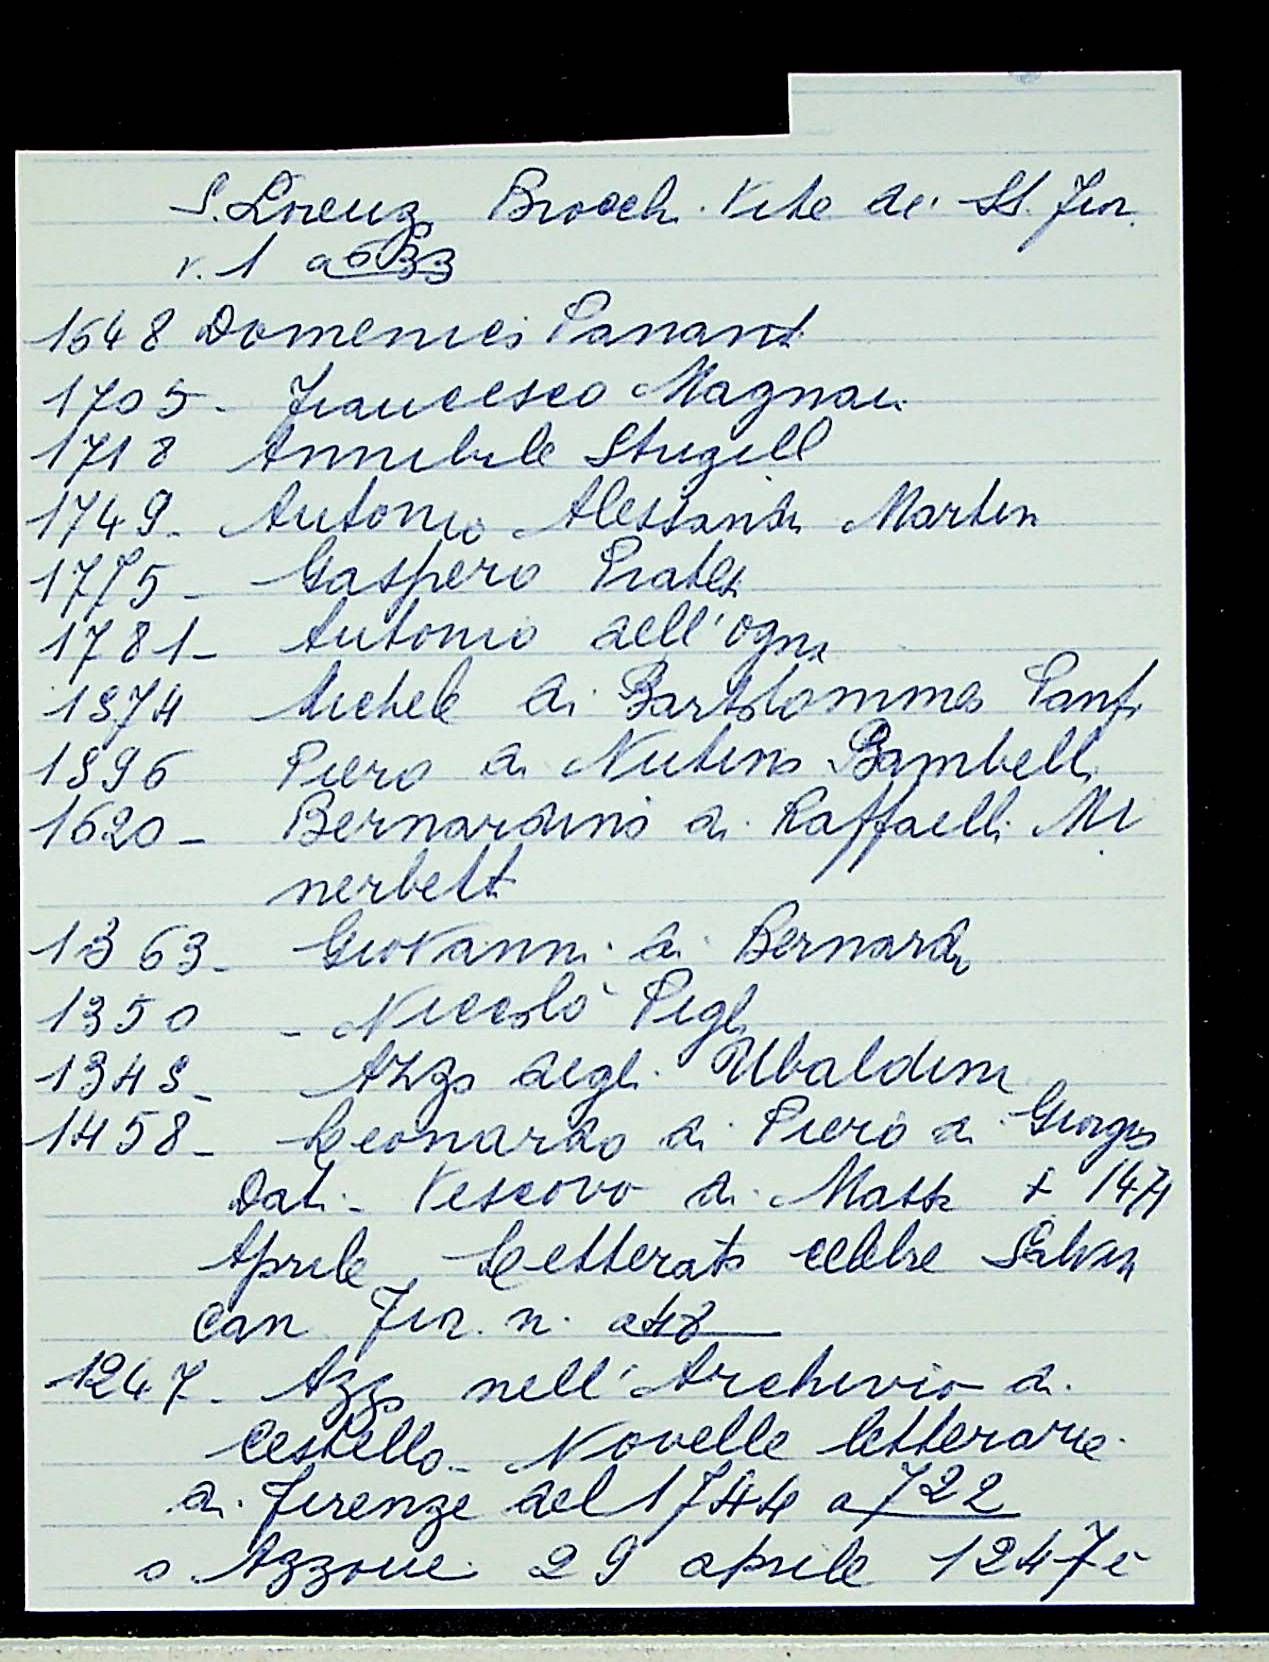 S. Lorenzo Brocchi Vite dei SS. Fior.
v. 1 a 633
1648 Domenico Pananti
1705 - Francesco Magnani
1718 Annibale Strigelli
1749 - Antonio Alessandri Martin
1775 - Gaspero Pratesi
1781 - Antonio dell'ogna
1374 Michele di Bartolommeo Panfi
1396 Piero di Nutino Bambelli
1620 - Bernardino di Raffaelli Mi
nerbetti
1363 - Giovanni di Bernardo
1350 - Niccolò Pigli
1348 - Azzo degli Ubaldini
1458 - Leonardo di Piero di Giorgio
Dati - Vescovo di Massa + 1471
Aprile, Letterato celebre Salvini
Can Fior. n. a 48
1247 - Azzo nell'Archivio di
Cestello - Novelle letterarie
di Firenze del 1744 a 722
o Azzone 29 aprile 1247 è